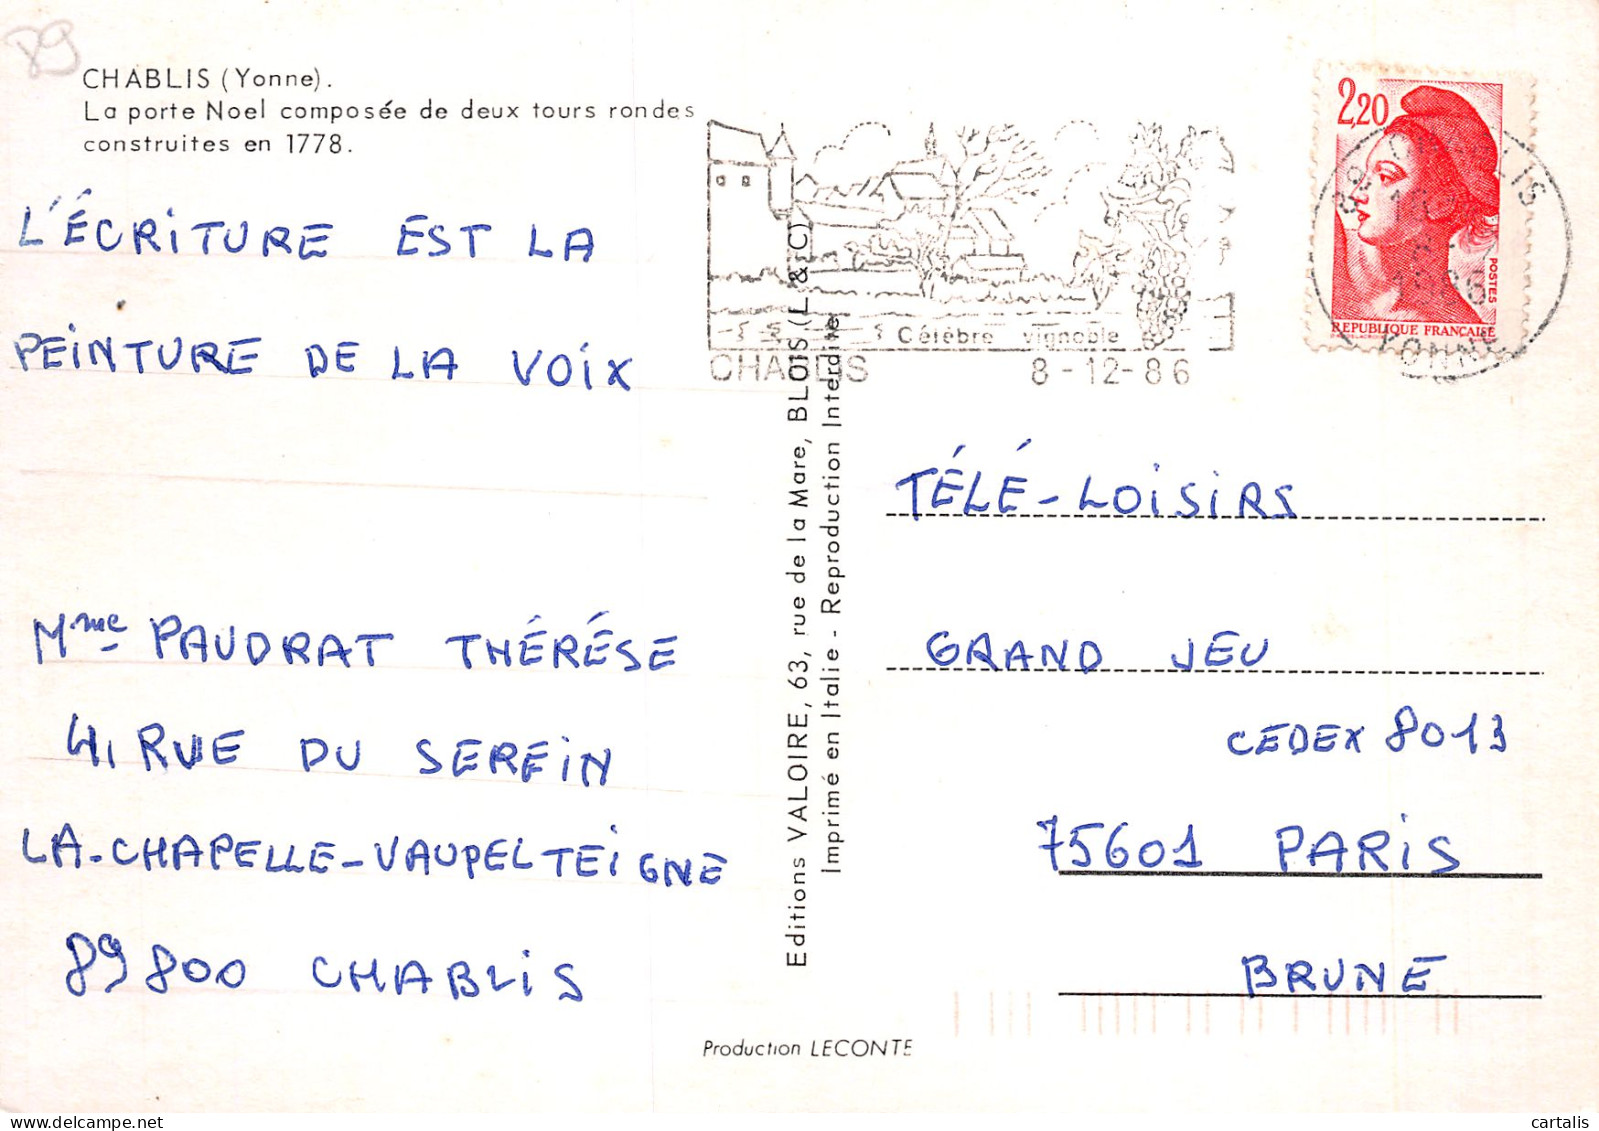 89
CHABLIS (Yonne).
La porte Noel composée de deux tours rondes
construites en 1778.
L'ÉCRITURE EST LA
PEINTURE DE LA VOIX
Mme PAUDRAT THÉRÉSE
41 RUE DU SEREIN
LA-CHAPELLE-VAUPELTEIGNE
89800 CHABLIS
Editions VALOIRE, 63, rue de la Mare, BLOIS (L. & C)
Imprimé en Italie - Reproduction Interdite
Célèbre vignoble
CHABLIS 8-12-86
2,20
POSTES
REPUBLIQUE FRANCAISE
89 CHABLIS
1986
YONNE
TÉLÉ-LOISIRS
GRAND JEU
CEDEX 8013
75601 PARIS
BRUNE
Production LECONTE
cartalis